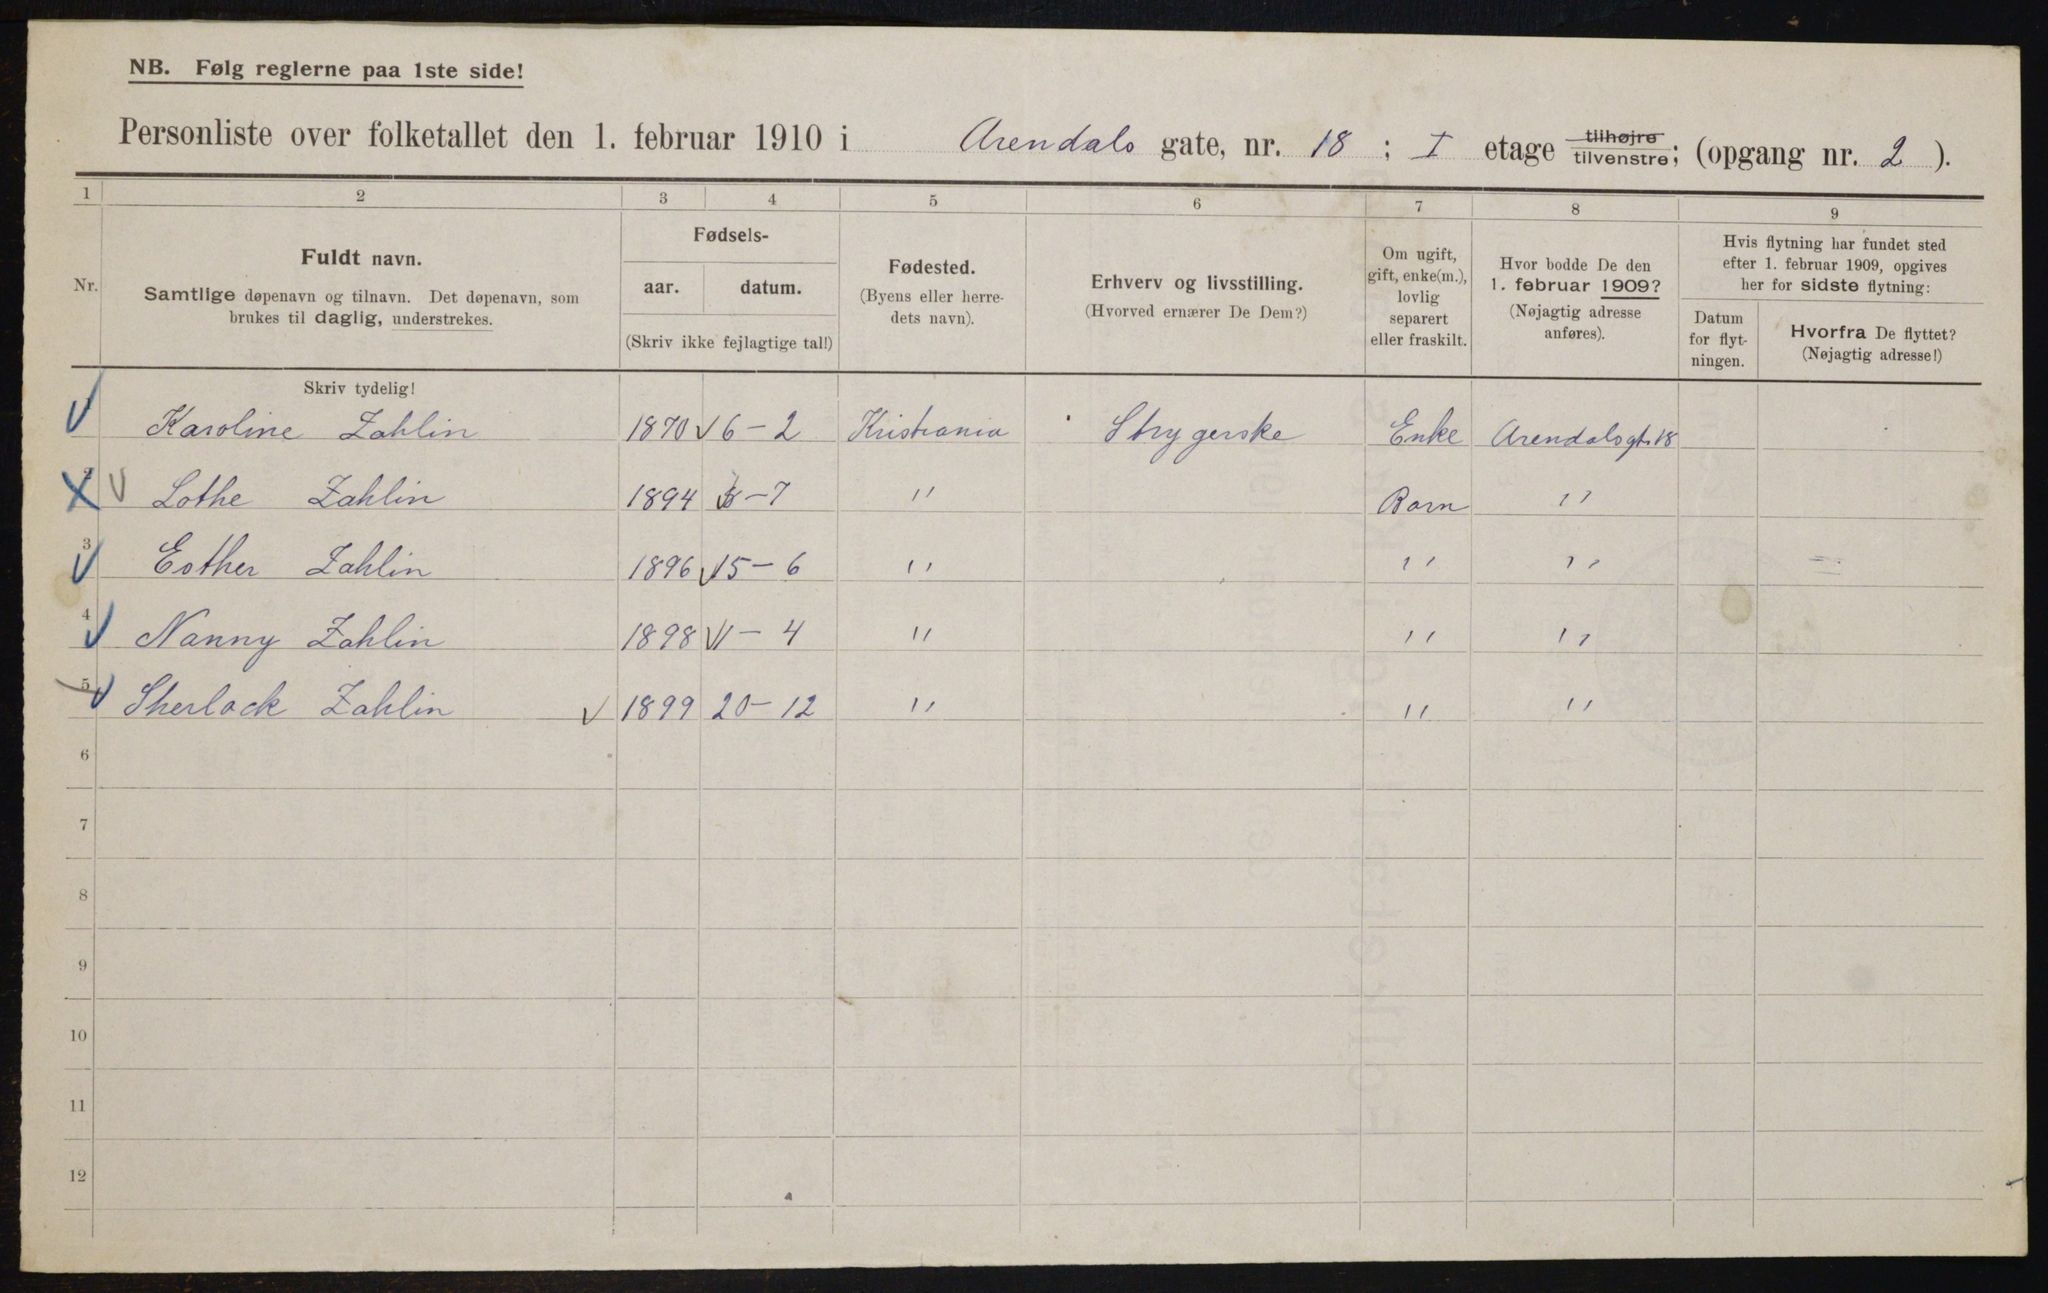 NB. Følg reglerne paa 1ste side!
Personliste over folketallet den 1. februar 1910 i Arendals gate, nr. 18 ; I etage tilhøjre tilvenstre; (opgang nr. 2 ).
1 2 3 4 5 6 7 8 9
Nr.
Fuldt navn.
Samtlige døpenavn og tilnavn. Det døpenavn, som
brukes til daglig, understrekes.
Fødsels-
aar. datum.
(Skriv ikke fejlagtige tal!)
Fødested.
(Byens eller herre-
dets navn).
Erhverv og livsstilling.
(Hvorved ernærer De Dem?)
Om ugift,
gift, enke(m.),
lovlig
separert
eller fraskilt.
Hvor bodde De den
1. februar 1909?
(Nøjagtig adresse
anføres).
Hvis flytning har fundet sted
efter 1. februar 1909, opgives
her for sidste flytning:
Datum
for flyt-
ningen.
Hvorfra De flyttet?
(Nøjagtig adresse!)
Skriv tydelig!
Karoline Zahlin 1870 6-2 Kristiania Strygerske Enke Arendalsgt. 18
2 Lothe Zahlin 1894 -7 " Barn "
3 Esther Zahlin 1896 15-6 " " "
4 Nanny Zahlin 1898 1-4 " " "
5 Sherlock Zahlin 1899 20-12 " " "
6
7
8
9
10
11
12